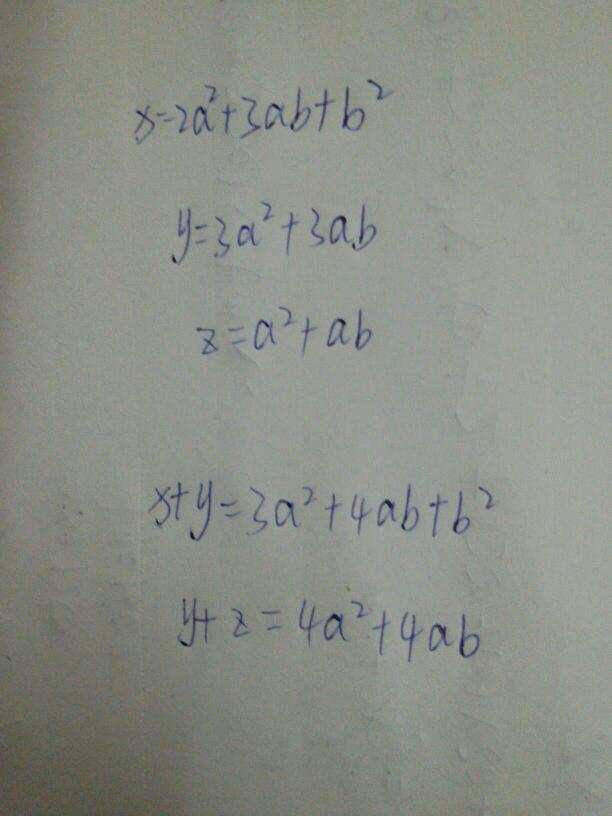 x=2a²+3ab+b²
y=3a²+3ab
z=a²+ab
x+y=3a²+4ab+b²
y+z=4a²+4ab